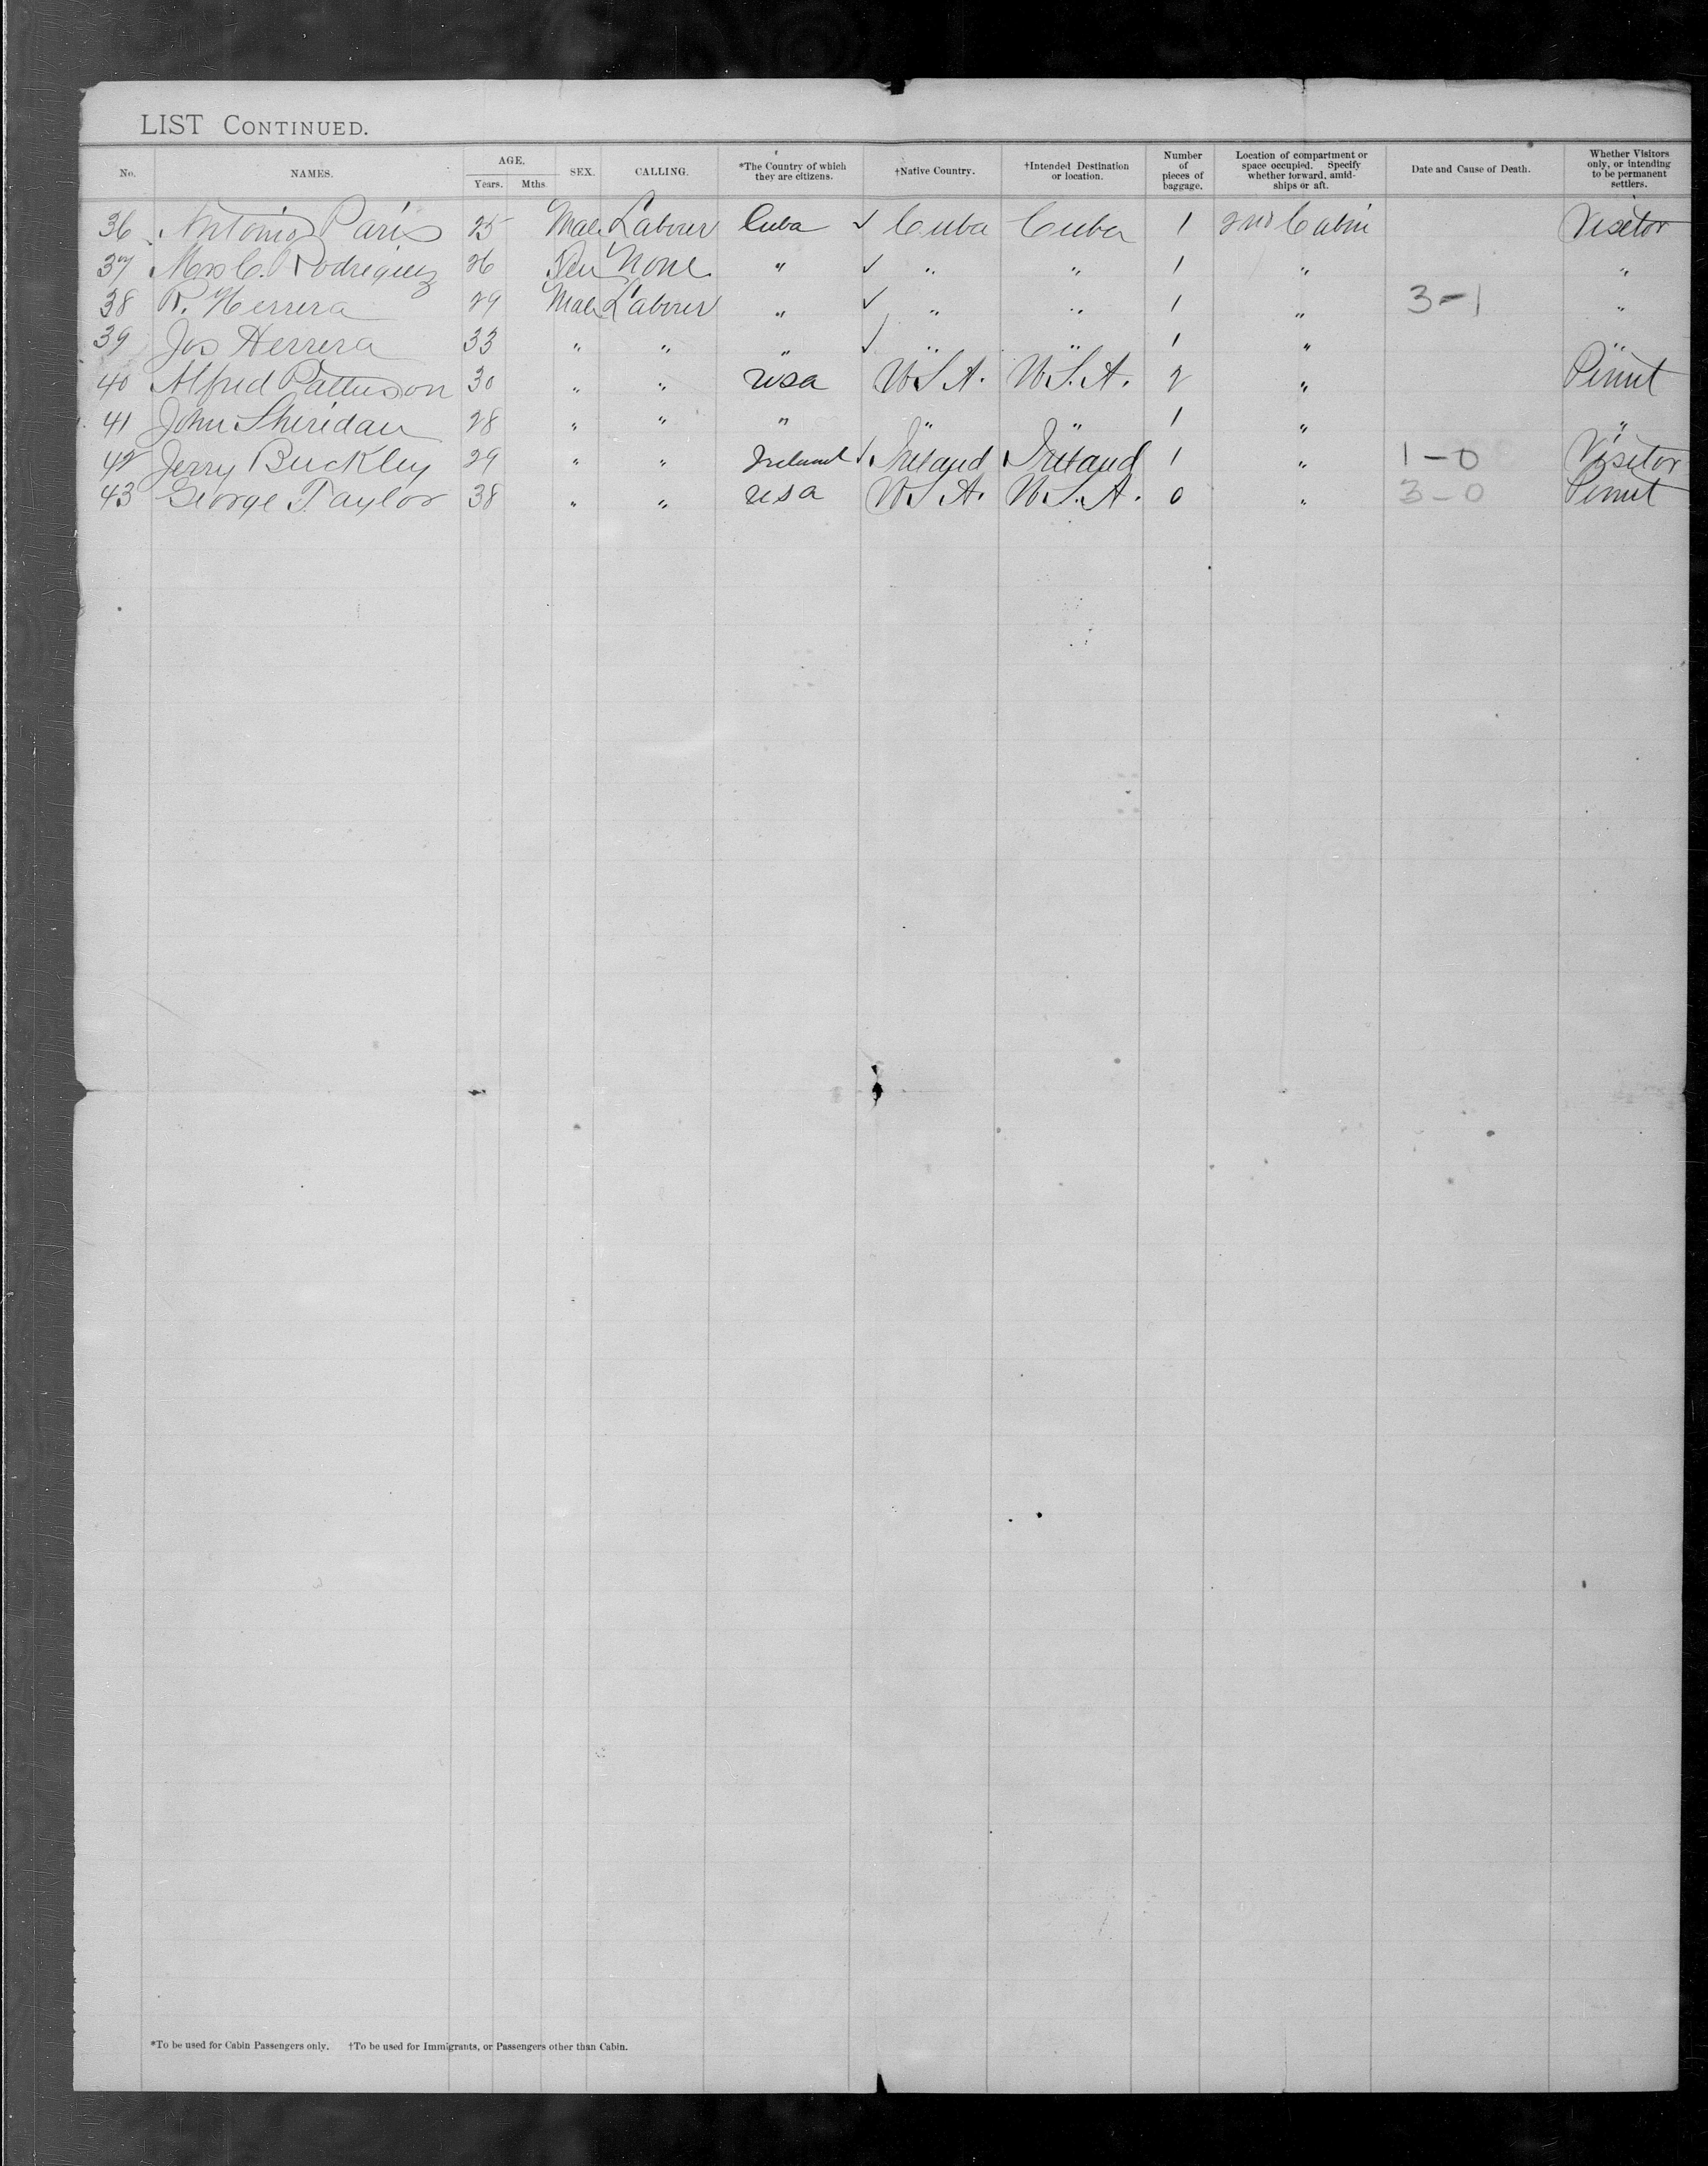 LIST CONTINUED.
No. NAMES. AGE. Years. Mths. SEX. CALLING. *The Country of which they are citizens. †Native Country. †Intended Destination or location. Number of pieces of baggage. Location of compartment or space occupied. Specify whether forward, amidships or aft. Date and Cause of Death. Whether Visitors only, or intending to be permanent settlers.
36 Antonio Paris 25 Male Labour Cuba ✓ Cuba Cuba 1 2nd Cabin Visitor
37 Mrs C. Rodriguez 26 None " ✓ " " 1 " "
38 R. Herrera 29 Male Labour " ✓ " " 1 " 3-1 "
39 Jos Herrera 33 " " " ✓ " " 1 " "
40 Alfred Patterson 30 " " usa U.S.A. U.S.A. 2 "
41 John Sheridan 28 " " " " " 1 " "
42 Jerry Buckley 29 " " Ireland ✓ Ireland Ireland 1 " 1-0 Visitor
43 George Taylor 38 " " usa U.S.A. U.S.A. 0 " 3-0
*To be used for Cabin Passengers only. †To be used for Immigrants, or Passengers other than Cabin.